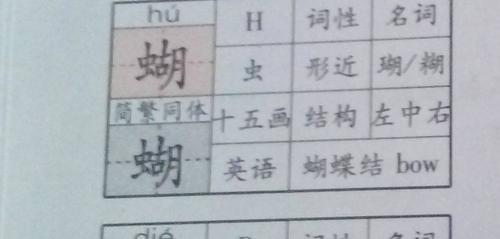 hú H 词性 名词
蝴 虫 形近 瑚/糊
简繁同体 十五画 结构 左中右
蝴 英语 蝴蝶结 bow
dié